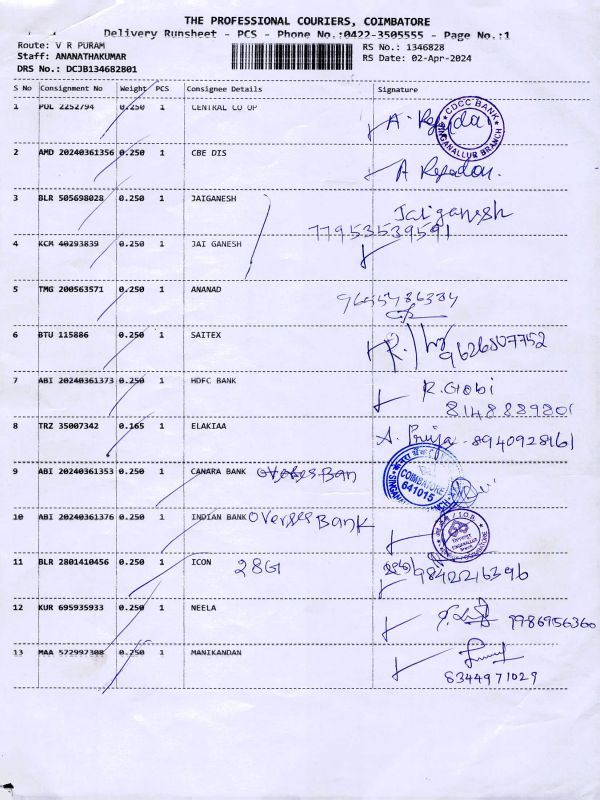 THE PROFESSIONAL COURIERS, COIMBATORE
Delivery Runsheet - PCS - Phone No.:0422-3505555 - Page No.:1
Route: V R PURAM
RS No.: 1346828
Staff: ANANATHAKUMAR
RS Date: 02-Apr-2024
DRS No.: DCJB134682801
S No Consignment No Weight PCS Consignee Details Signature
1 POL 2252794 0.250 1 CENTRAL CO OP
CDCC BANK
SINGANALLUR BRANCH
2 AMD 20240361356 0.250 1 CBE DIS
3 BLR 505698028 0.250 1 JAIGANESH Jaiganesh
77953539591
4 KCM 40293839 0.250 1 JAI GANESH
5 TMG 200563571 0.250 1 ANANAD
6 BTU 115886 0.250 1 SAITEX 9626507752
7 ABI 20240361373 0.250 1 HDFC BANK R. Gobi
8148889801
8 TRZ 35007342 0.165 1 ELAKIAA A. Priya 8940928161
9 ABI 20240361353 0.250 1 CANARA BANK
COIMBATORE
641015
10 ABI 20240361376 0.250 1 INDIAN BANK Overses Bank
11 BLR 2801410456 0.250 1 ICON 28G 9842216396
12 KUR 695935933 0.250 1 NEELA 9986956360
13 MAA 572997308 0.250 1 MANIKANDAN
6344971029